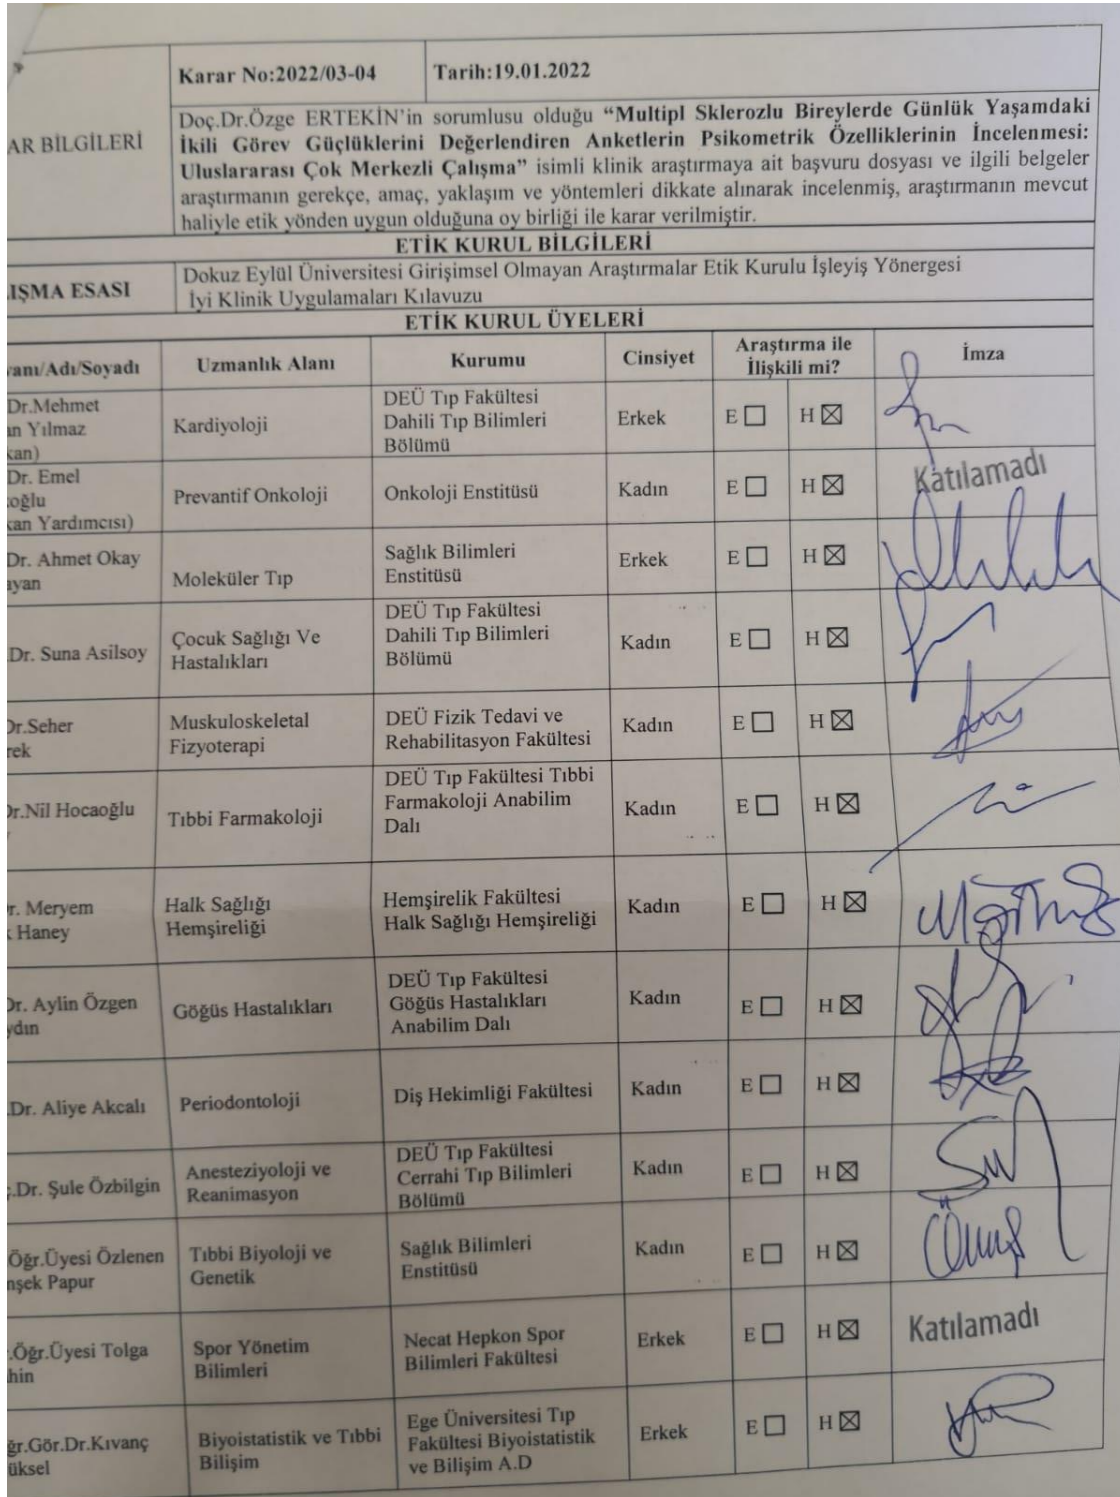 Karar No:2022/03-04 Tarih:19.01.2022
AR BİLGİLERİ
Doç.Dr.Özge ERTEKİN’in sorumlusu olduğu “Multipl Sklerozlu Bireylerde Günlük Yaşamdaki
İkili Görev Güçlüklerini Değerlendiren Anketlerin Psikometrik Özelliklerinin İncelenmesi:
Uluslararası Çok Merkezli Çalışma” isimli klinik araştırmaya ait başvuru dosyası ve ilgili belgeler
araştırmanın gerekçe, amaç, yaklaşım ve yöntemleri dikkate alınarak incelenmiş, araştırmanın mevcut
haliyle etik yönden uygun olduğuna oy birliği ile karar verilmiştir.
ETİK KURUL BİLGİLERİ
IŞMA ESASI
Dokuz Eylül Üniversitesi Girişimsel Olmayan Araştırmalar Etik Kurulu İşleyiş Yönergesi
İyi Klinik Uygulamaları Kılavuzu
ETİK KURUL ÜYELERİ
vanı/Adı/Soyadı Uzmanlık Alanı Kurumu Cinsiyet Araştırma ile İmza
İlişkili mi?
Dr.Mehmet
an Yılmaz
kan)
Kardiyoloji
DEÜ Tıp Fakültesi
Dahili Tıp Bilimleri
Bölümü
Erkek E ☐ H ☒
Dr. Emel
oğlu
kan Yardımcısı)
Prevantif Onkoloji Onkoloji Enstitüsü Kadın E ☐ H ☒ Katılamadı
Dr. Ahmet Okay
ayan
Moleküler Tıp
Sağlık Bilimleri
Enstitüsü
Erkek E ☐ H ☒
.Dr. Suna Asilsoy
Çocuk Sağlığı Ve
Hastalıkları
DEÜ Tıp Fakültesi
Dahili Tıp Bilimleri
Bölümü
Kadın E ☐ H ☒
Dr.Seher
rek
Muskuloskeletal
Fizyoterapi
DEÜ Fizik Tedavi ve
Rehabilitasyon Fakültesi
Kadın E ☐ H ☒
Dr.Nil Hocaoğlu
Tıbbi Farmakoloji
DEÜ Tıp Fakültesi Tıbbi
Farmakoloji Anabilim
Dalı
Kadın E ☐ H ☒
r. Meryem
Haney
Halk Sağlığı
Hemşireliği
Hemşirelik Fakültesi
Halk Sağlığı Hemşireliği
Kadın E ☐ H ☒
Dr. Aylin Özgen
ydın
Göğüs Hastalıkları
DEÜ Tıp Fakültesi
Göğüs Hastalıkları
Anabilim Dalı
Kadın E ☐ H ☒
.Dr. Aliye Akcalı Periodontoloji Diş Hekimliği Fakültesi Kadın E ☐ H ☒
ç.Dr. Şule Özbilgin
Anesteziyoloji ve
Reanimasyon
DEÜ Tıp Fakültesi
Cerrahi Tıp Bilimleri
Bölümü
Kadın E ☐ H ☒
Öğr.Üyesi Özlenen
nşek Papur
Tıbbi Biyoloji ve
Genetik
Sağlık Bilimleri
Enstitüsü
Kadın E ☐ H ☒
.Öğr.Üyesi Tolga
hin
Spor Yönetim
Bilimleri
Necat Hepkon Spor
Bilimleri Fakültesi
Erkek E ☐ H ☒ Katılamadı
ğr.Gör.Dr.Kıvanç
üksel
Biyoistatistik ve Tıbbi
Bilişim
Ege Üniversitesi Tıp
Fakültesi Biyoistatistik
ve Bilişim A.D
Erkek E ☐ H ☒